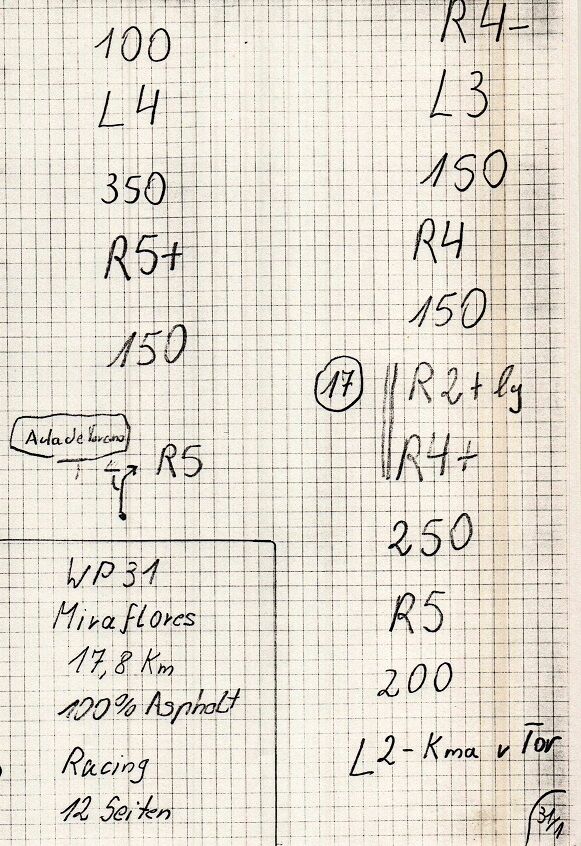 100
L4
350
R5+
150
R5
WP 31
Miraflores
17,8 Km
100% Asphalt
Racing
12 Seiten
R4-
L3
150
R4
150
17
R2+ lg
R4+
250
R5
200
L2- Kma v Tor
31/1